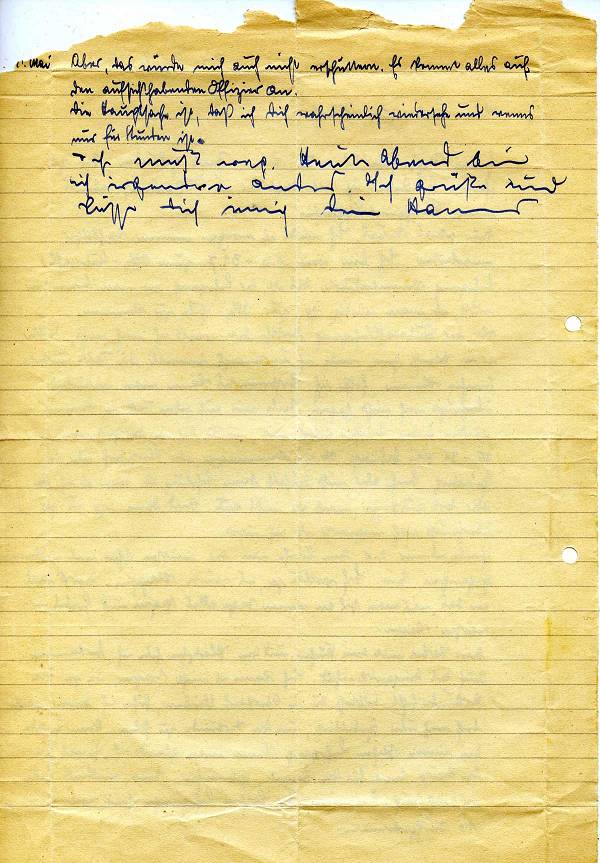 Mai Aber, das würde mich auch nicht erschüttern. Es kommt alles auf
den aufsichthabenden Offizier an.
Die Hauptsache ist, daß ich Dich wahrscheinlich wiedersehe und wenns
nur für Stunden ist.
Ich muß weg. Heute Abend bin
ich irgendwo anders. Ich grüße und
küsse Dich innig Dein Hannes